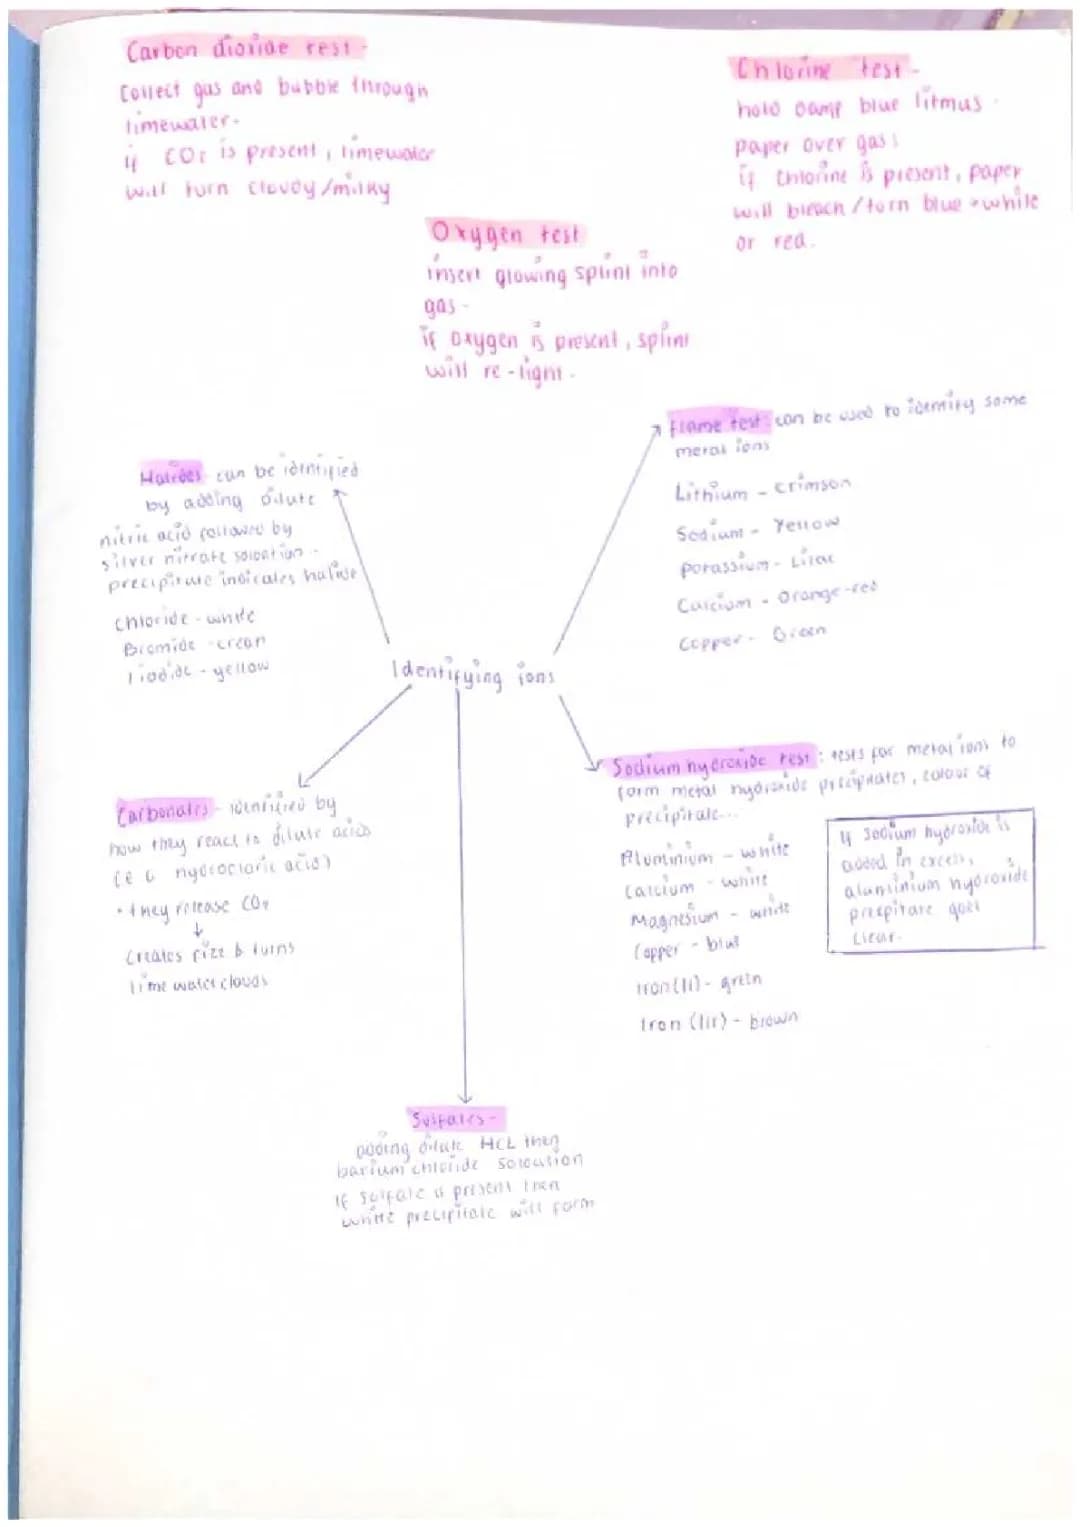 Carbon dioxide test -
Collect gas and bubble through
limewater -
if CO2 is present, limewater
will turn cloudy/milky
Chlorine test -
hold damp blue litmus
paper over gas :
if chlorine is present, paper
will bleach / turn blue → white
or red.
Oxygen test
insert glowing splint into
gas -
if oxygen is present, splint
will re-light.
Flame test: can be used to identify some
metal ions
Lithium - crimson
Sodium - Yellow
potassium - Lilac
Calcium - Orange-red
Copper - Green
Halides can be identified
by adding dilute
nitric acid followed by
silver nitrate solution -
precipitate indicates halide
Chloride - white
Bromide - cream
Iodide - yellow
Identifying ions
Sodium hydroxide test : tests for metal ions to
form metal hydroxide precipitates, colour of
precipitate...
Aluminium - white
Calcium - white
Magnesium - white
Copper - blue
Iron (II) - green
Iron (III) - brown
If sodium hydroxide is
added in excess,
aluminium hydroxide
precpitate goes
clear.
Carbonates - identified by
how they react to dilute acids
(e.g hydrocloric acid)
• they release CO2
↓
Creates fizz & turns
lime water cloudy
Sulfates -
adding dilute HCL then
barium chloride solution
if sulfate is present then
white precipitate will form